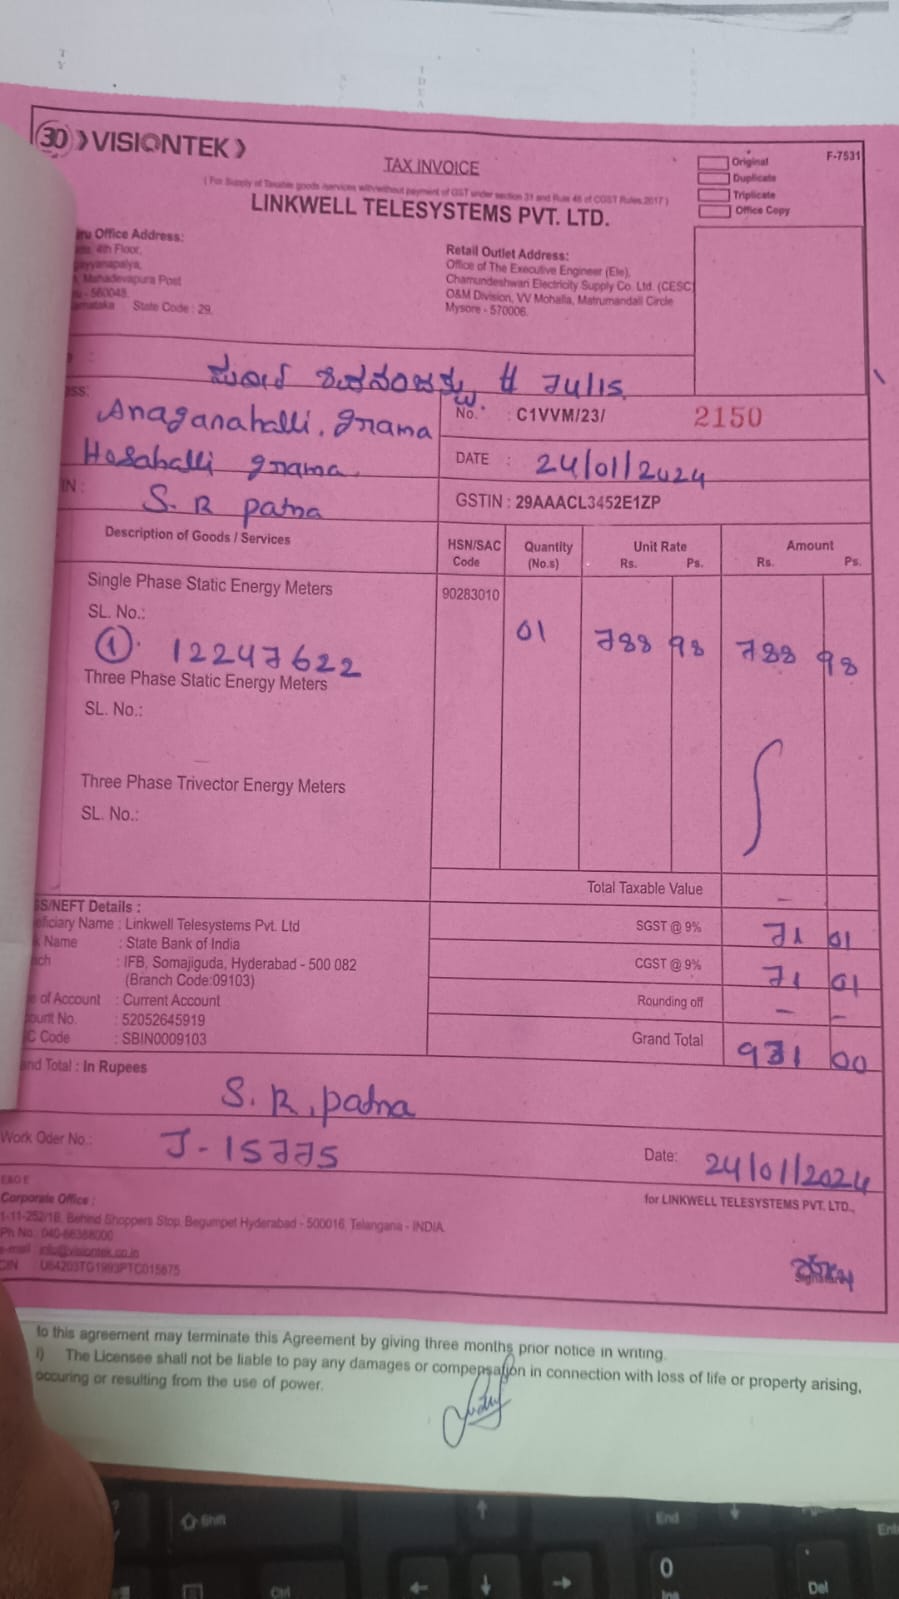 30 VISIONTEK
TAX INVOICE
(For Supply of Taxable goods /services with/without payment of GST under section 31 and Rule 46 of CGST Rules 2017)
LINKWELL TELESYSTEMS PVT. LTD.
Original
Duplicate
Triplicate
Office Copy
F-7531
Office Address:
4th Floor,
Mahadevapura Post
- 560048.
State Code : 29.
Retail Outlet Address:
Office of The Executive Engineer (Ele),
Chamundeshwari Electricity Supply Co. Ltd. (CESC
O&M Division, VV Mohalla, Matrumandali Circle
Mysore - 570006.
Anaganahalli, grama
Hosahalli grama
S. R patna
No. : C1VVM/23/ 2150
DATE : 24/01/2024
GSTIN : 29AAACL3452E1ZP
Description of Goods / Services
HSN/SAC Code
Quantity (No.s)
Unit Rate
Rs. Ps.
Amount
Rs. Ps.
Single Phase Static Energy Meters
90283010
SL. No.:
① 12247622
01 788 98 788 98
Three Phase Static Energy Meters
SL. No.:
Three Phase Trivector Energy Meters
SL. No.:
Total Taxable Value -
SGST @ 9% 71 01
CGST @ 9% 71 01
Rounding off - -
Grand Total 931 00
GS/NEFT Details :
eficiary Name : Linkwell Telesystems Pvt. Ltd
k Name : State Bank of India
nch : IFB, Somajiguda, Hyderabad - 500 082
(Branch Code:09103)
e of Account : Current Account
ount No. : 52052645919
C Code : SBIN0009103
and Total : In Rupees
S. R. patna
Work Oder No.: J-15775
Date: 24/01/2024
E&O E
Corporate Office :
1-11-252/1B, Behind Shoppers Stop, Begumpet Hyderabad - 500016, Telangana - INDIA.
Ph No.: 040-66388000
e-mail : info@visiontek.co.in
CIN : U64203TG1993PTC015875
for LINKWELL TELESYSTEMS PVT. LTD.,
to this agreement may terminate this Agreement by giving three months prior notice in writing.
i) The Licensee shall not be liable to pay any damages or compensation in connection with loss of life or property arising,
occuring or resulting from the use of power.
Shift
End
Ctrl
0
Ins
Del